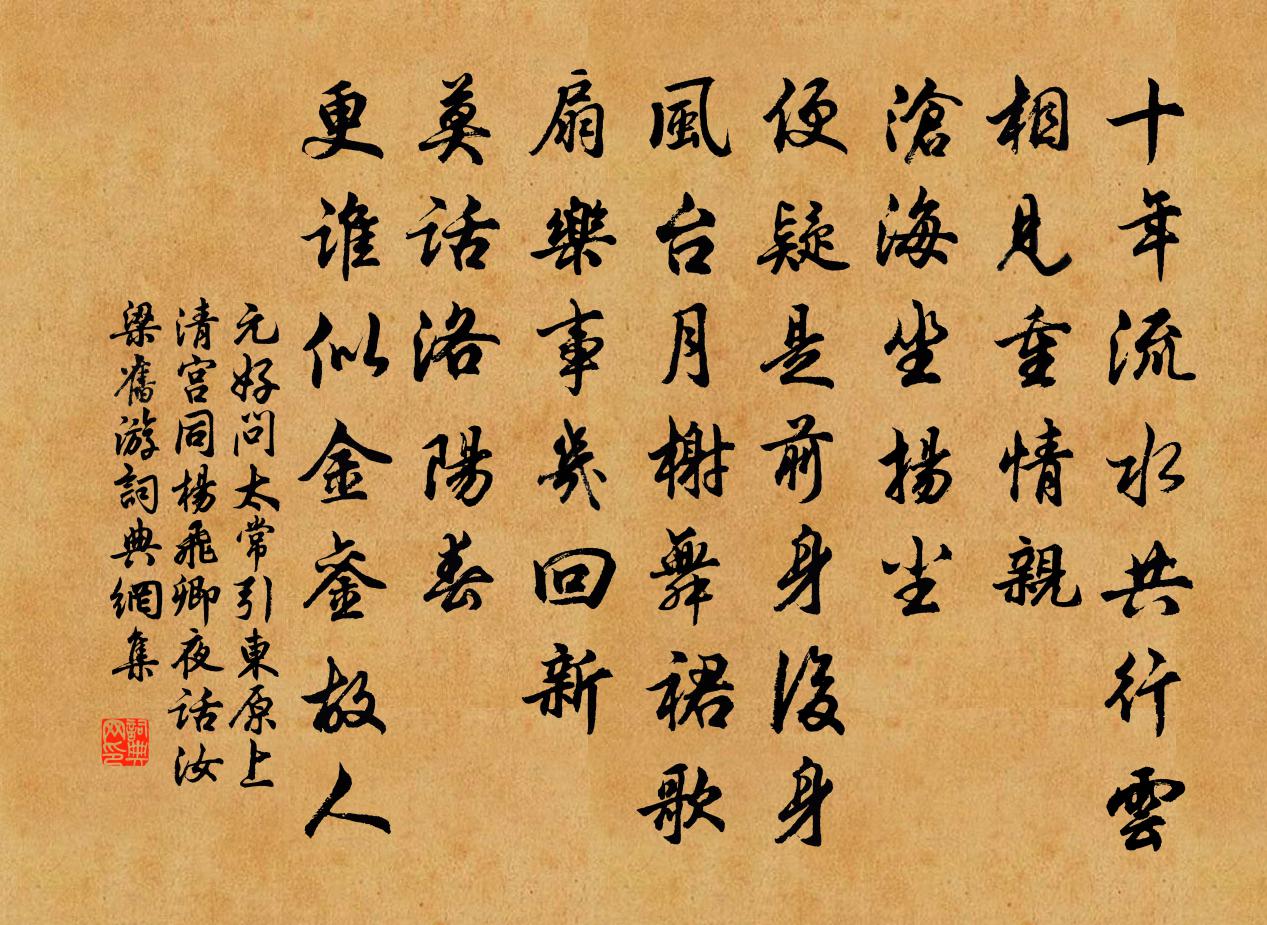 十年流水共行雲
相見重情親
滄海坐揚尘
便疑是前身後身
風台月榭舞裙歌
扇樂事幾回新
莫話洛陽春
更誰似金銮故人
元好問太常引東原上
清宮同楊飛卿夜話汝
梁舊游詞典網集
詞典网印